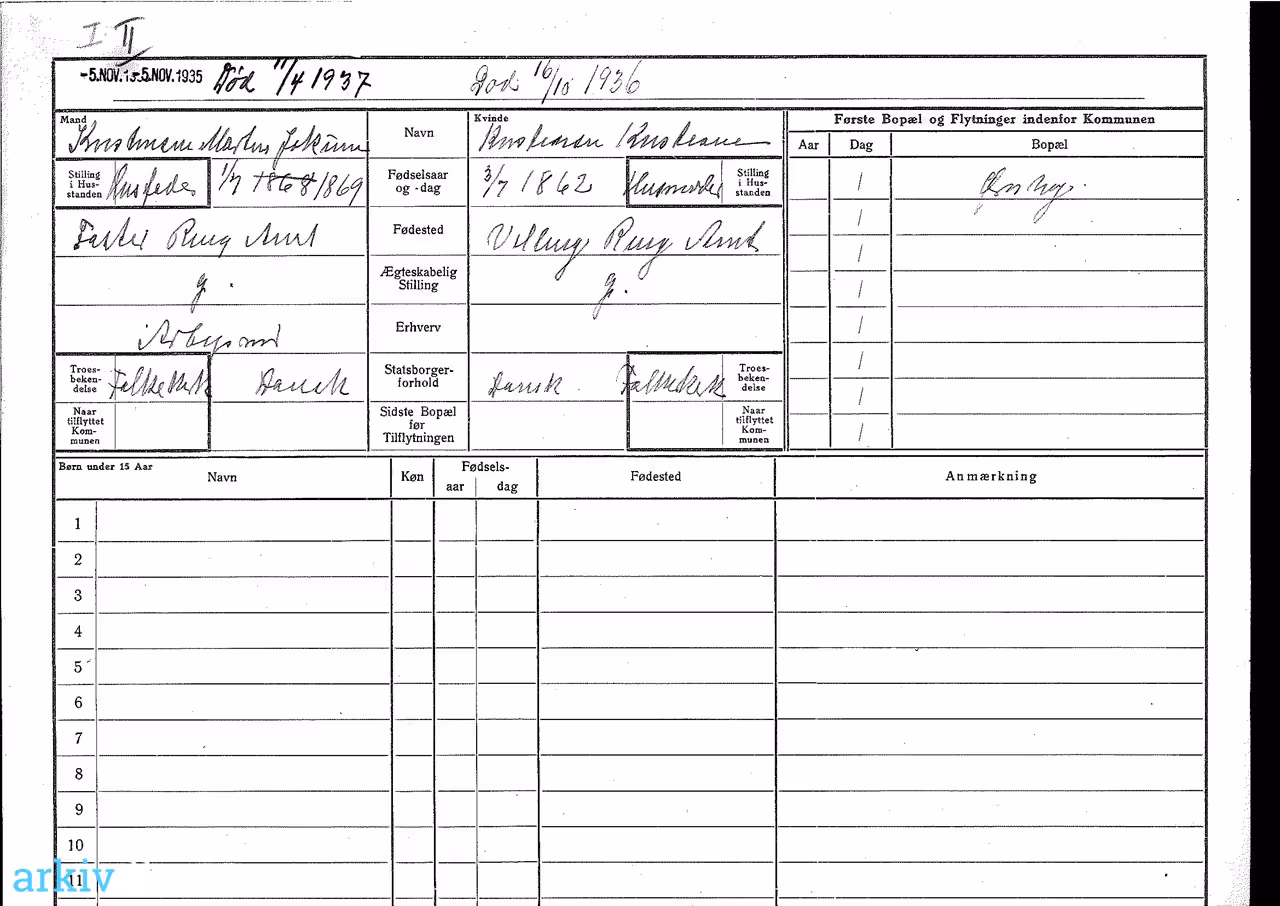 I II
-5.NOV.1935 -5.NOV.1935 Død 11/4 1937 Død 16/10 1936
Mand
Navn
Kvinde
Første Bopæl og Flytninger indenfor Kommunen
Aar Dag Bopæl
Stilling i Hus- standen
1/7 1868 1869
Fødselsaar og -dag
3/7 1862
Husmoder
Stilling i Hus- standen
/
Faster Ring Amt
Fødested
Ring Amt
/
g.
Ægteskabelig Stilling
g.
/
/
Erhverv
/
Troes- beken- delse
Folkekirk
Dansk
Statsborger- forhold
Dansk.
Folkekirk
Troes- beken- delse
/
/
Naar tilflyttet Kom- munen
Sidste Bopæl før Tilflytningen
Naar tilflyttet Kom- munen
/
Børn under 15 Aar
Navn Køn Fødsels- aar dag Fødested Anmærkning
1
2
3
4
5
6
7
8
9
10
11
arkiv